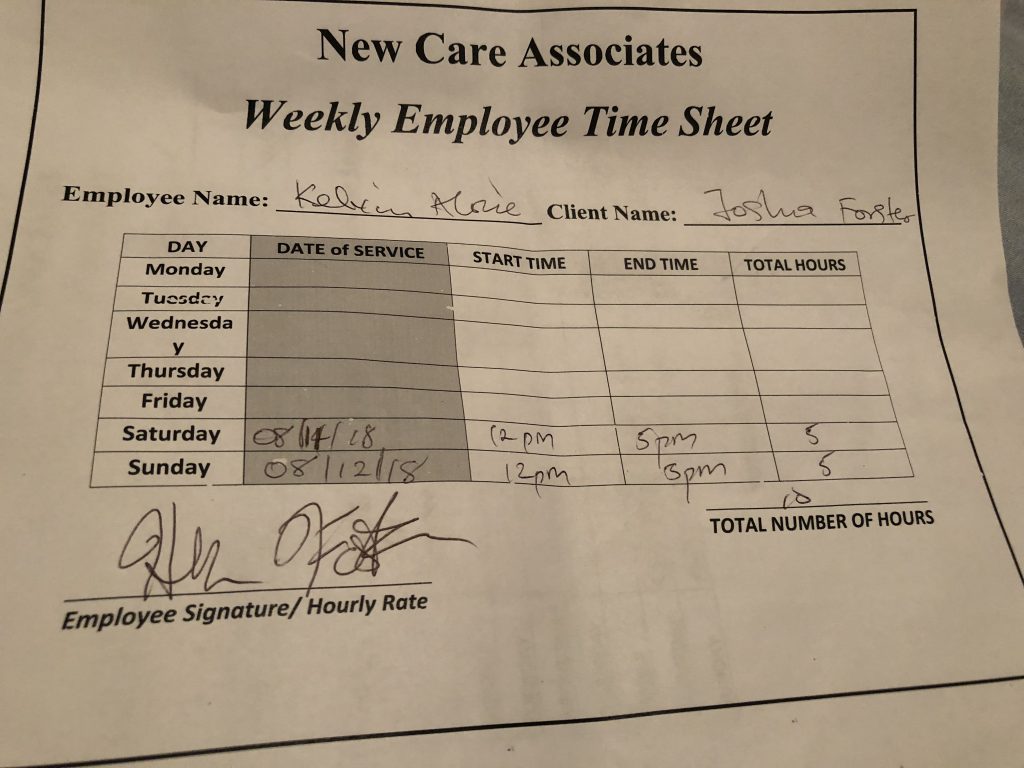 New Care Associates
Weekly Employee Time Sheet
Employee Name: Kelvin Client Name: Joshua Forster
DAY DATE of SERVICE START TIME END TIME TOTAL HOURS
Monday
Tuesday
Wednesda
y
Thursday
Friday
Saturday 08/ /18 12pm 5pm 5
Sunday 08/12/18 12pm 5pm 5
10
TOTAL NUMBER OF HOURS
Employee Signature/ Hourly Rate